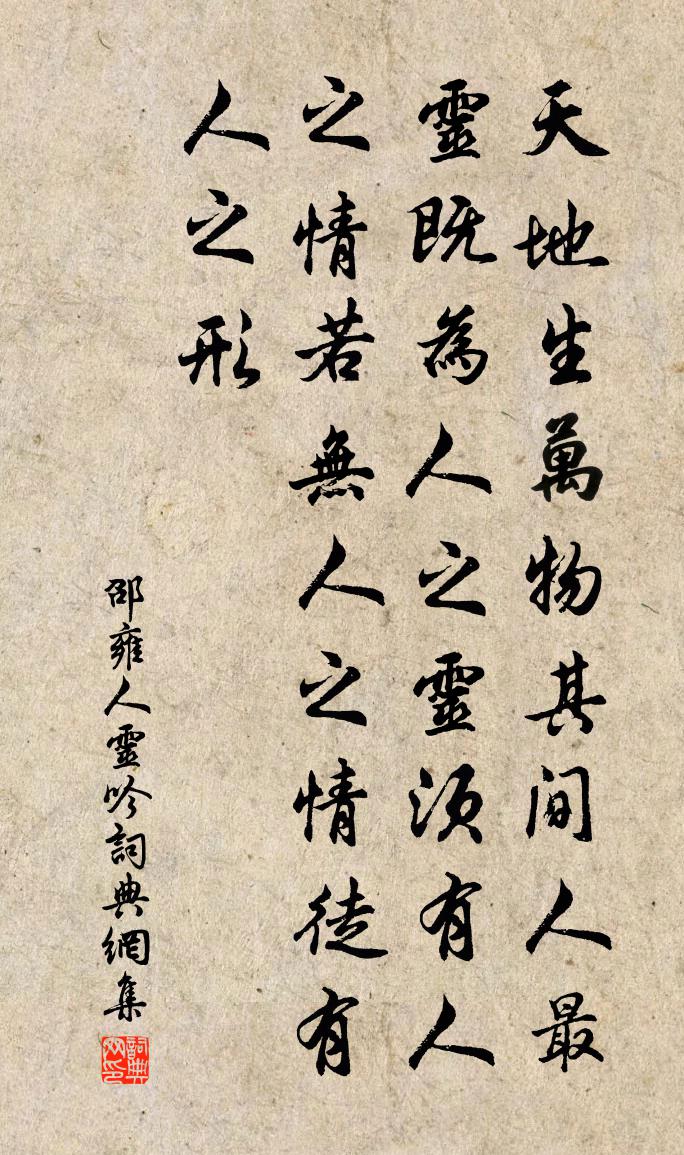 天地生萬物其間人最
靈既為人之靈須有人
之情若無人之情徒有
人之形
邵雍人靈吟詞典網集
詞典網印